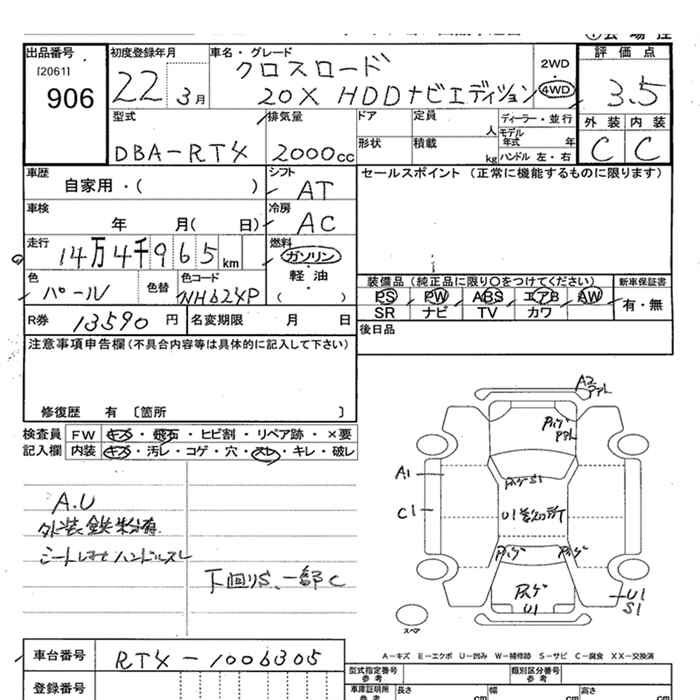 出品番号 初度登録年月 車名・グレード 評価点
I20611
906
22 3月
クロスロード
20X HDDナビエディション
2WD
4WD
3.5
型式 排気量 ドア 定員 人 ディーラー・並行 外装 内装
モデル年式 年
DBA-RT4 2000cc
形状 積載 kg ハンドル 左・右
C C
車歴 シフト セールスポイント (正常に機能するものに限ります)
自家用・( ) AT
車検 冷房
年 月( 日) AC
走行 燃料
14万4千965km
ガソリン
軽・油
( )
色 色替 色コード
パール NH624P
装備品(純正品に限り〇をつけてください) 新車保証書
PS PW ABS エアB AW
有・無
SR ナビ TV カワ
R券 13590円 名変期限 月 日
後日品
注意事項申告欄(不具合内容等は具体的に記入して下さい)
修復歴 有 〔箇所 〕
検査員 FW キズ・飛石・ヒビ割・リペア跡・×要
記入欄 内装 キズ・汚レ・コゲ・穴・スレ・キレ・破レ
A.U
外装鉄粉有
ハンドルスレ
下回りS、一部C
A2
A1
C1
S1
U1
U1
U1
S1
スペア
A-キズ E-エクボ U-凹み W-補修跡 S-サビ C-腐食 XX-交換済
車台番号 RT4-1006305
登録番号
型式指定番号 参考 類別区分番号 参考
車庫証明所 参考 長さ cm 幅 cm 高さ cm